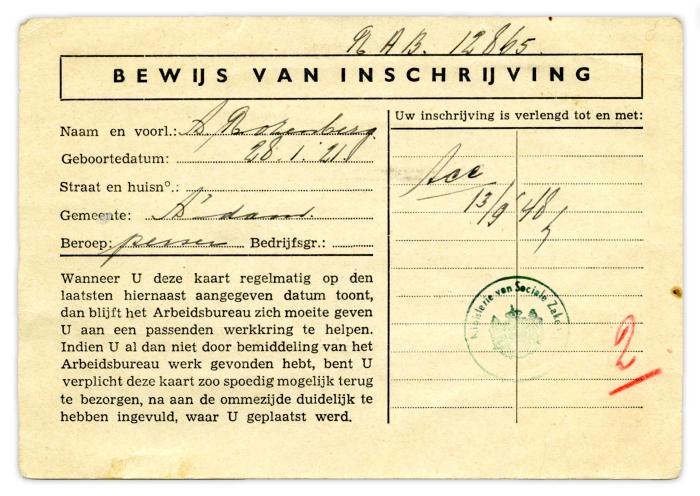 R A B. 12865.
BEWIJS VAN INSCHRIJVING
Naam en voorl.: A Rozenberg
Geboortedatum: 28.1.21
Straat en huisn°.:
Gemeente: A'dam.
Beroep: Bedrijfsgr.:
Wanneer U deze kaart regelmatig op den
laatsten hiernaast aangegeven datum toont,
dan blijft het Arbeidsbureau zich moeite geven
U aan een passenden werkkring te helpen.
Indien U al dan niet door bemiddeling van het
Arbeidsbureau werk gevonden hebt, bent U
verplicht deze kaart zoo spoedig mogelijk terug
te bezorgen, na aan de ommezijde duidelijk te
hebben ingevuld, waar U geplaatst werd.
Uw inschrijving is verlengd tot en met:
Acc
13/9 48
Ministerie van Sociale Zake
2